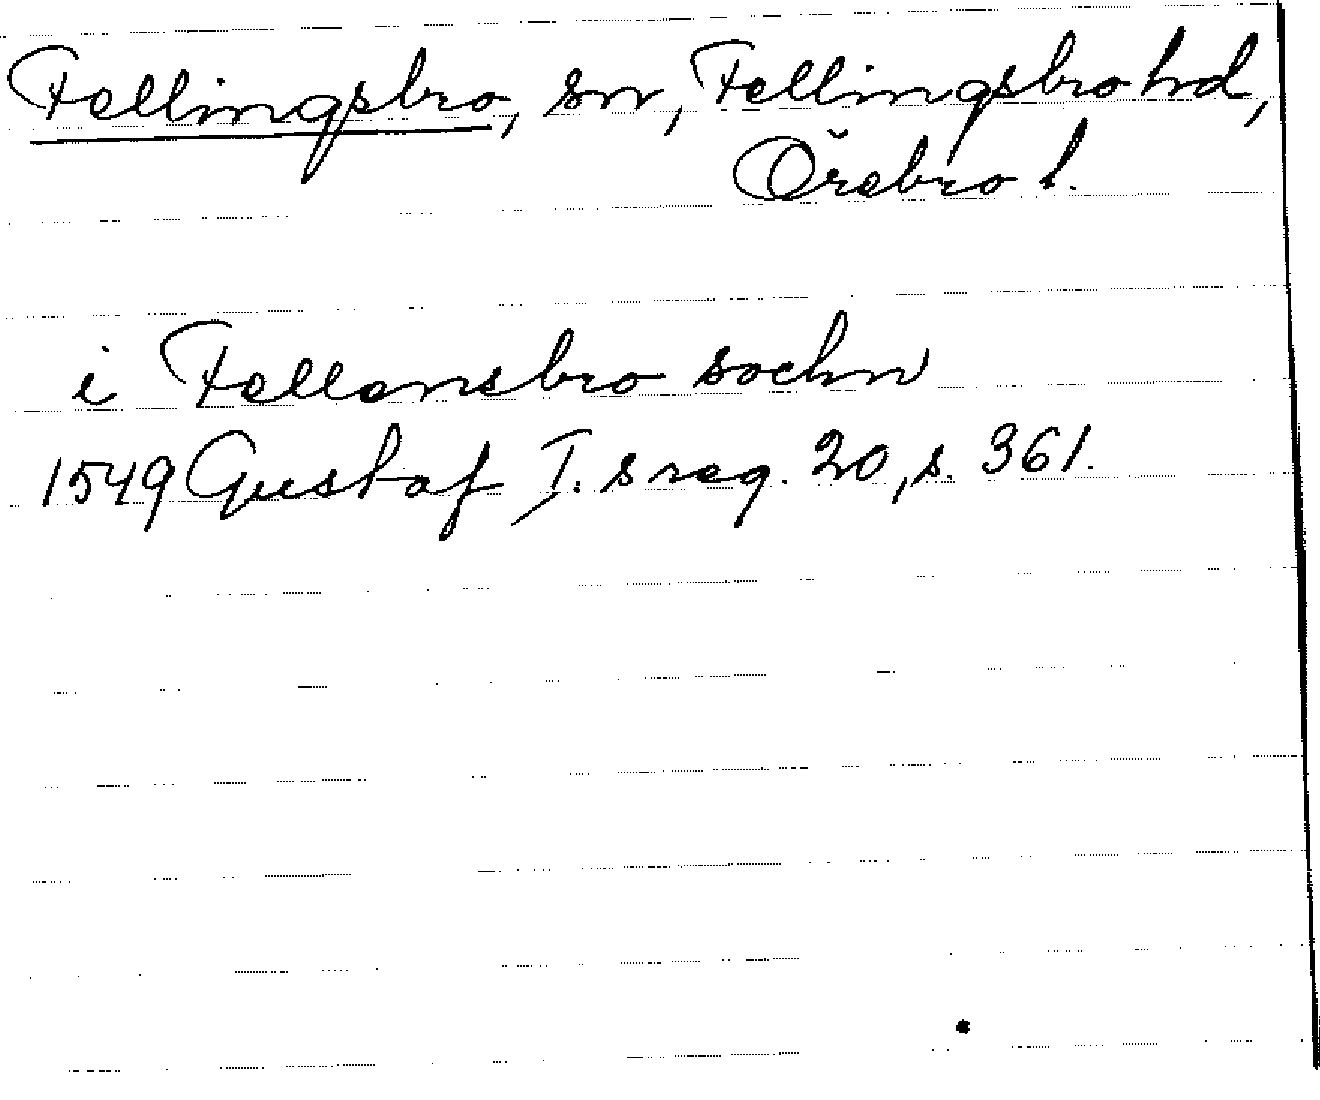 Fellingsbro, sn, Fellingsbro hd,
Örebro l.
i Fellensbro sochn
1549 Gustaf I.s reg. 20, s. 361.